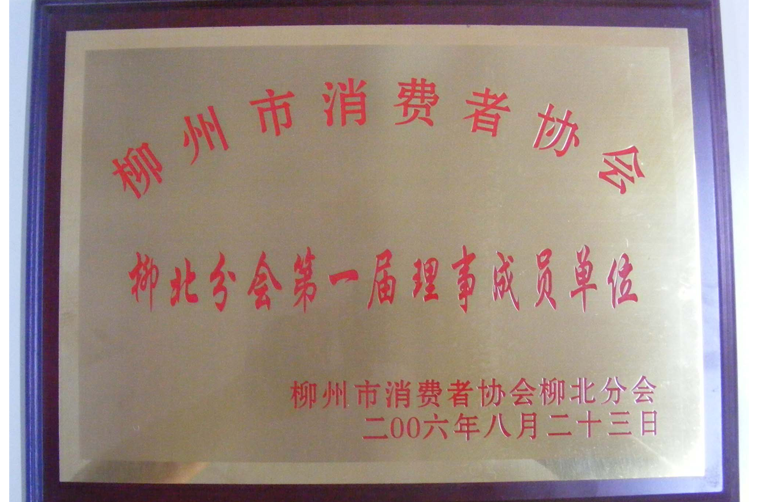 柳州市消费者协会
柳北分会第一届理事成员单位
柳州市消费者协会柳北分会
二00六年八月二十三日